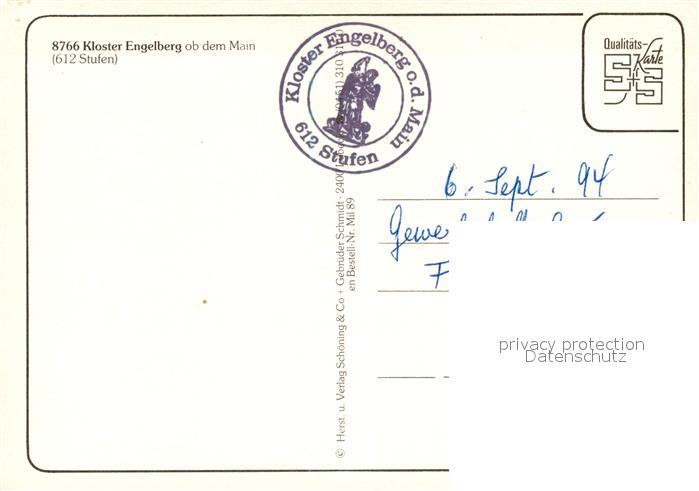 8766 Kloster Engelberg ob dem Main
(612 Stufen)
Kloster Engelberg o.d. Main
612 Stufen
Qualitäts-
Karte
S+S
© Herst. u. Verlag Schöning & Co + Gebrüder Schmidt · 2400
en Bestell-Nr. Mil 89
6. Sept. 94
privacy protection
Datenschutz